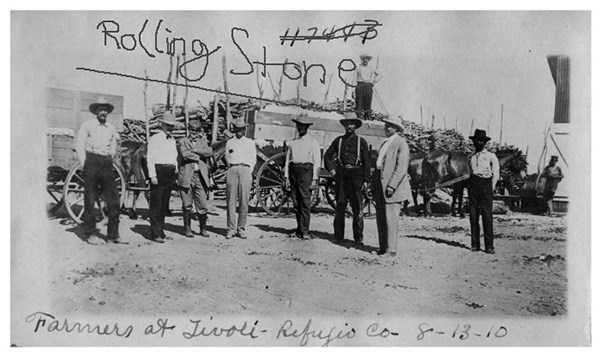 Rolling Stone
Farmers at Tivoli - Refugio Co - 8-13-10